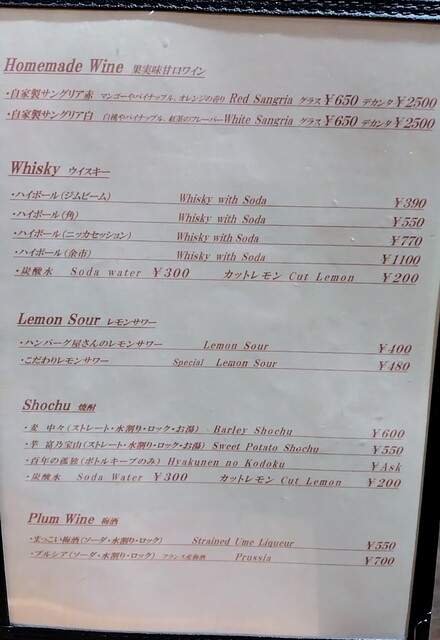 Homemade Wine 果実味甘口ワイン
・自家製サングリア赤 マンゴーやパイナップル、オレンジの香り Red Sangria グラス ¥650 デカンタ ¥2500
・自家製サングリア白 白桃やパイナップル、紅茶のフレーバー White Sangria グラス ¥650 デカンタ ¥2500
Whisky ウイスキー
・ハイボール(ジムビーム) Whisky with Soda ¥390
・ハイボール(角) Whisky with Soda ¥550
・ハイボール(ニッカセッション) Whisky with Soda ¥770
・ハイボール(余市) Whisky with Soda ¥1100
・炭酸水 Soda water ¥300 カットレモン Cut Lemon ¥200
Lemon Sour レモンサワー
・ハンバーグ屋さんのレモンサワー Lemon Sour ¥400
・こだわりレモンサワー Special Lemon Sour ¥480
Shochu 焼酎
・麦 中々(ストレート・水割り・ロック・お湯) Barley Shochu ¥600
・芋 富乃宝山(ストレート・水割り・ロック・お湯) Sweet Potato Shochu ¥550
・百年の孤独(ボトルキープのみ) Hyakunen no Kodoku ¥Ask
・炭酸水 Soda Water ¥300 カットレモン Cut Lemon ¥200
Plum Wine 梅酒
・まっこい梅酒(ソーダ・水割り・ロック) Strained Ume Liqueur ¥550
・プルシア(ソーダ・水割り・ロック) フランス産梅酒 Prussia ¥700